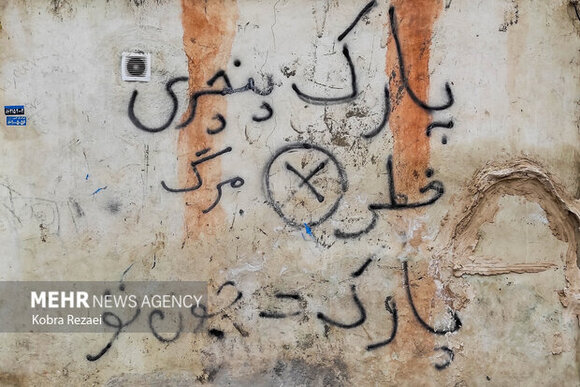 پارک پنچری
خطر مرگ
پارک
MEHR NEWS AGENCY
Kobra Rezaei